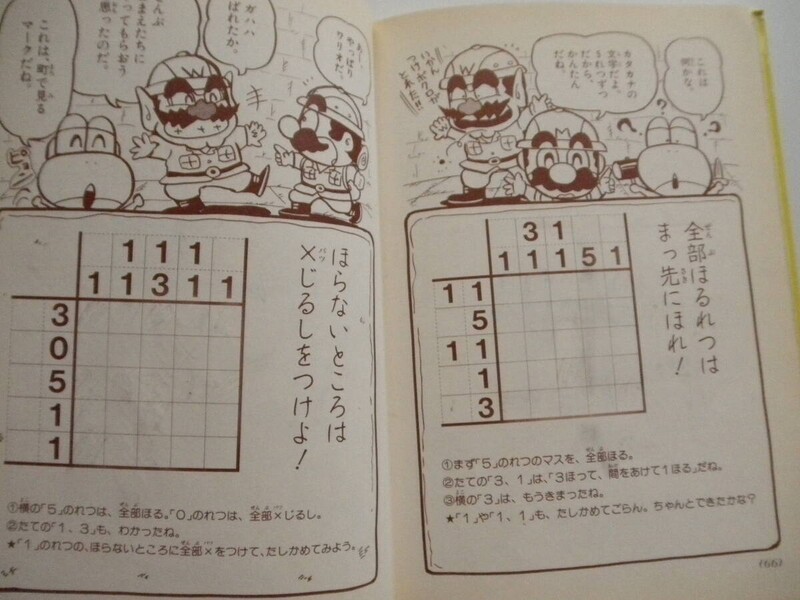 これは
何かな。
カタカナの
文字だよ。
5れつずつ
だから、
かんたん
だね。
いかん
つけボクロが
とれた!!
?
?
?
全部ほるれつは
まっ先にほれ!
3 1
1 1 1 5 1
1 1
5
1 1
1
3
①まず「5」のれつのマスを、全部ほる。
②たての「3、1」は、「3ほって、間をあけて1ほる」だね。
③横の「3」は、もうきまったね。
★「1」や「1、1」も、たしかめてごらん。ちゃんとできたかな?
(66)
やっぱり
ワリオだ。
ガハハ
ばれたか。
んぶ
まえたちに
ってもらおう
思ったのだ。
これは、町で見る
マークだね。
ピョン
ほらないところは
×じるしをつけよ!
1 1 1
1 1 3 1 1
3
0
5
1
1
①横の「5」のれつは、全部ほる。「0」のれつは、全部×じるし。
②たての「1、3」も、わかったね。
★「1」のれつの、ほらないところに全部×をつけて、たしかめてみよう。